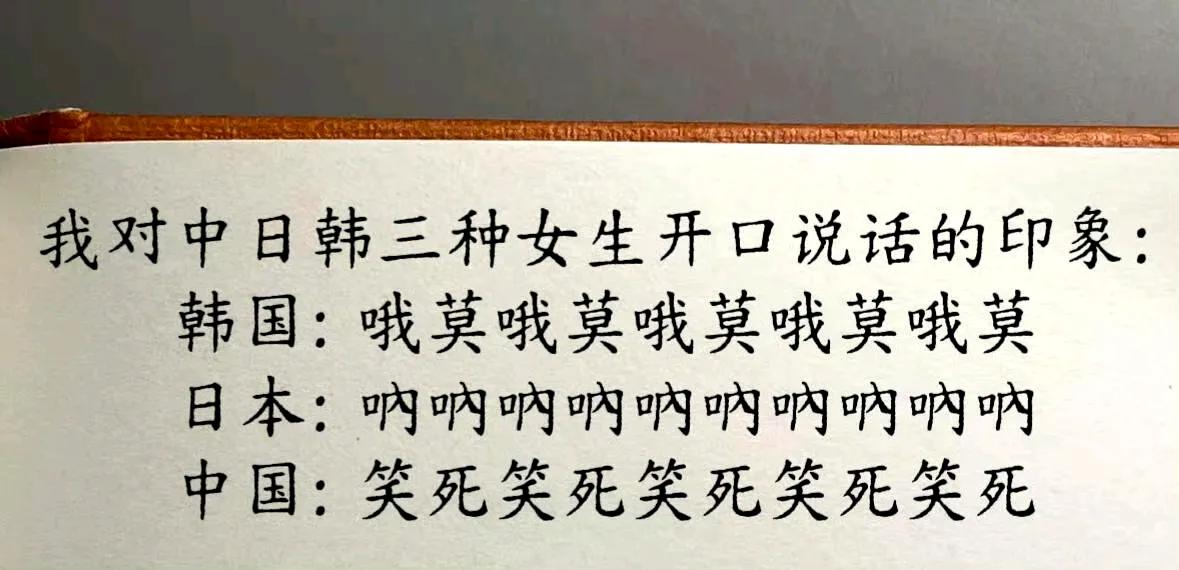 我对中日韩三种女生开口说话的印象：
韩国：哦莫哦莫哦莫哦莫哦莫
日本：吶吶吶吶吶吶吶吶吶吶
中国：笑死笑死笑死笑死笑死